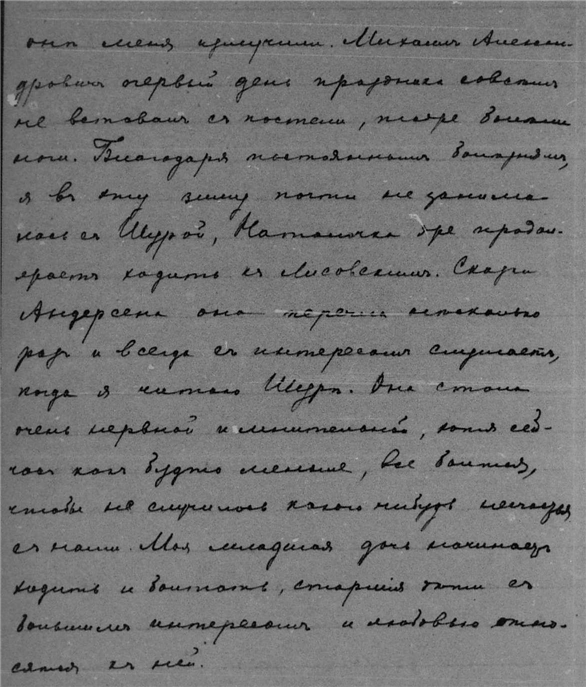 они меня измучили. Михаилъ Алексан-
дровичъ первый день праздника совсѣмъ
не вставалъ съ постели, болѣли
ноги. Благодаря постояннымъ болѣзнямъ,
я въ эту зиму почти не занима-
лась съ Шурой, Наталочка продол-
жаетъ ходить къ Лисовскимъ. Сказки
Андерсена она нѣсколько
разъ и всегда съ интересомъ слушаетъ,
когда я читаю Шурѣ. Она стала
очень нервной и мнительной, хотя сей-
часъ какъ будто меньше, все боится,
чтобы не случилось какого нибудь несчастья
съ нами. Моя младшая дочь начинаетъ
ходить и болтать, старшія дѣти съ
большимъ интересомъ и любовью отно-
сятся къ ней.